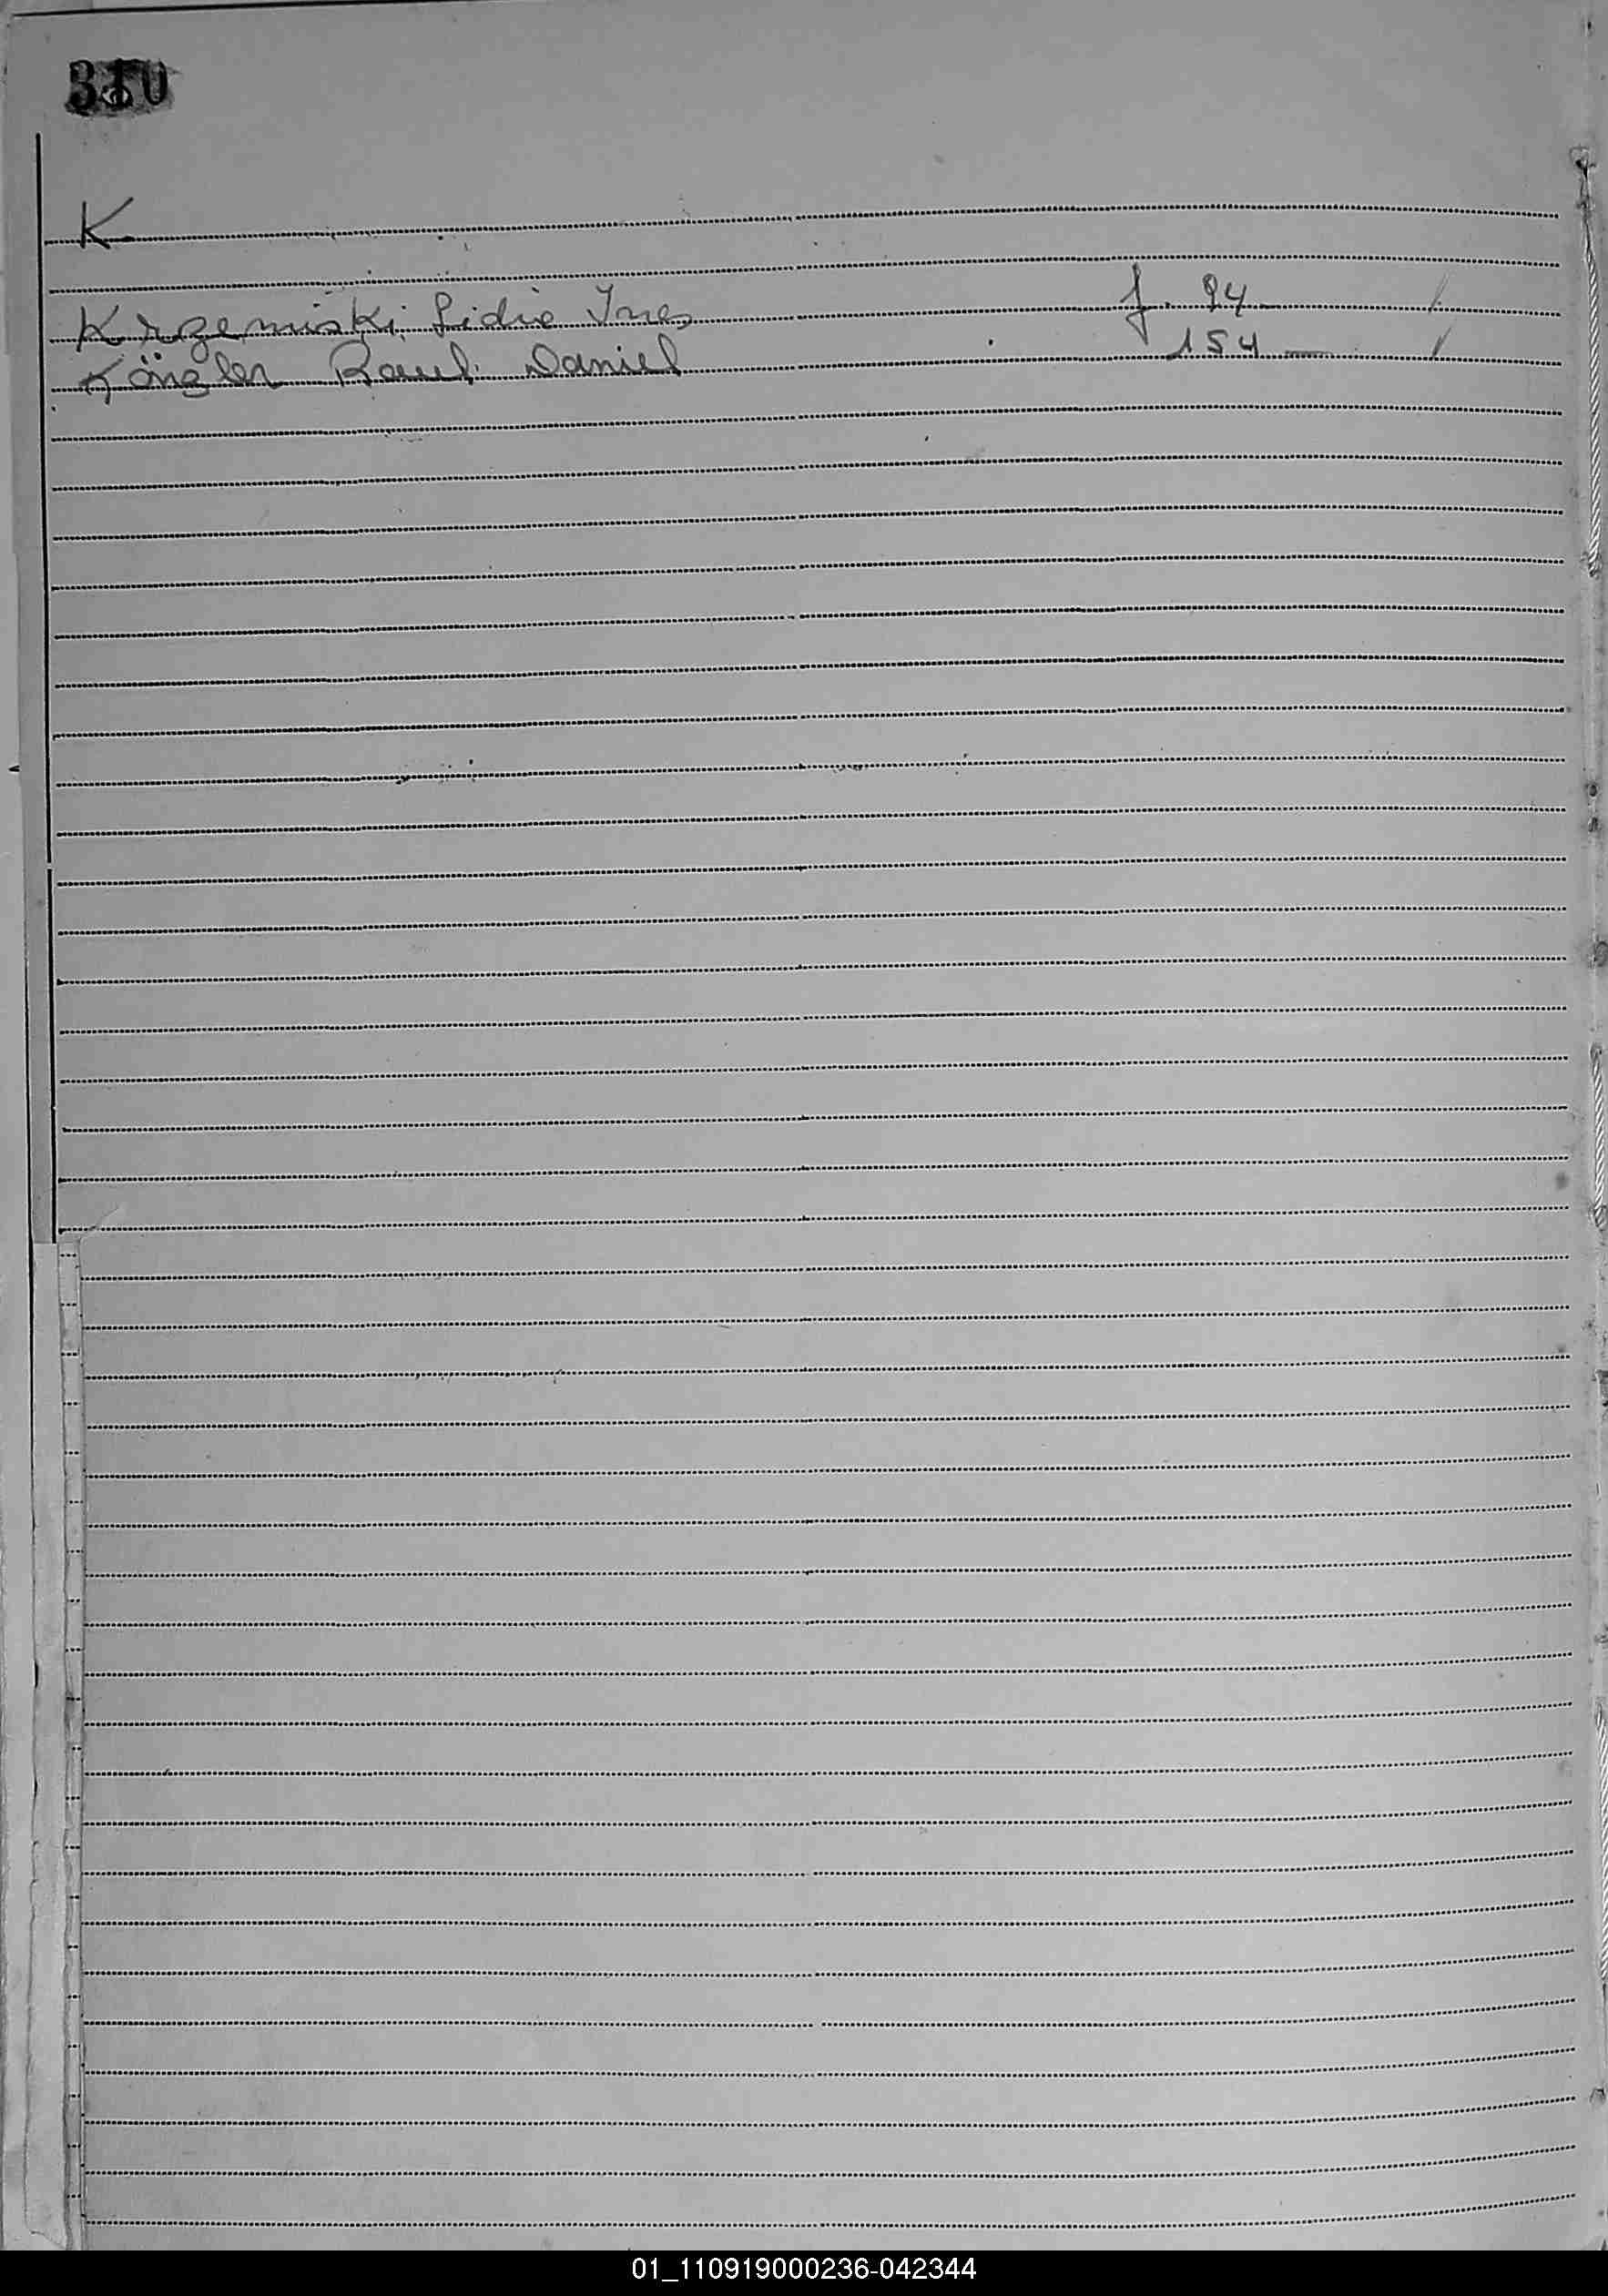 310
K
Krzemiski Lidia Ines f. 94
Känzler Raul Daniel 154
01_110919000236-042344